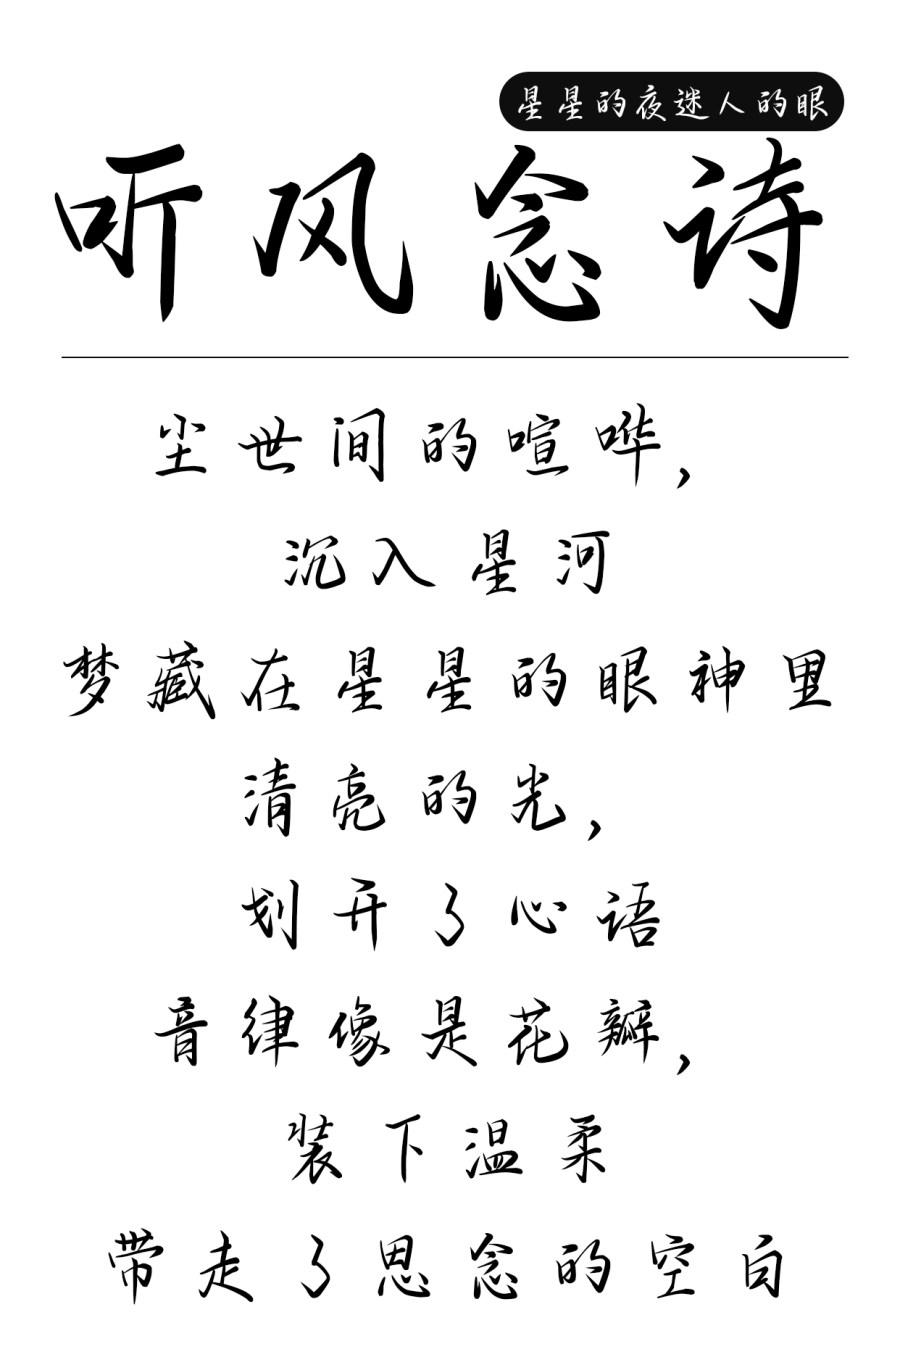 星星的夜迷人的眼
听风念诗
尘世间的喧哗,
沉入星河
梦藏在星星的眼神里
清亮的光,
划开了心语
音律像是花瓣,
装下温柔
带走了思念的空白